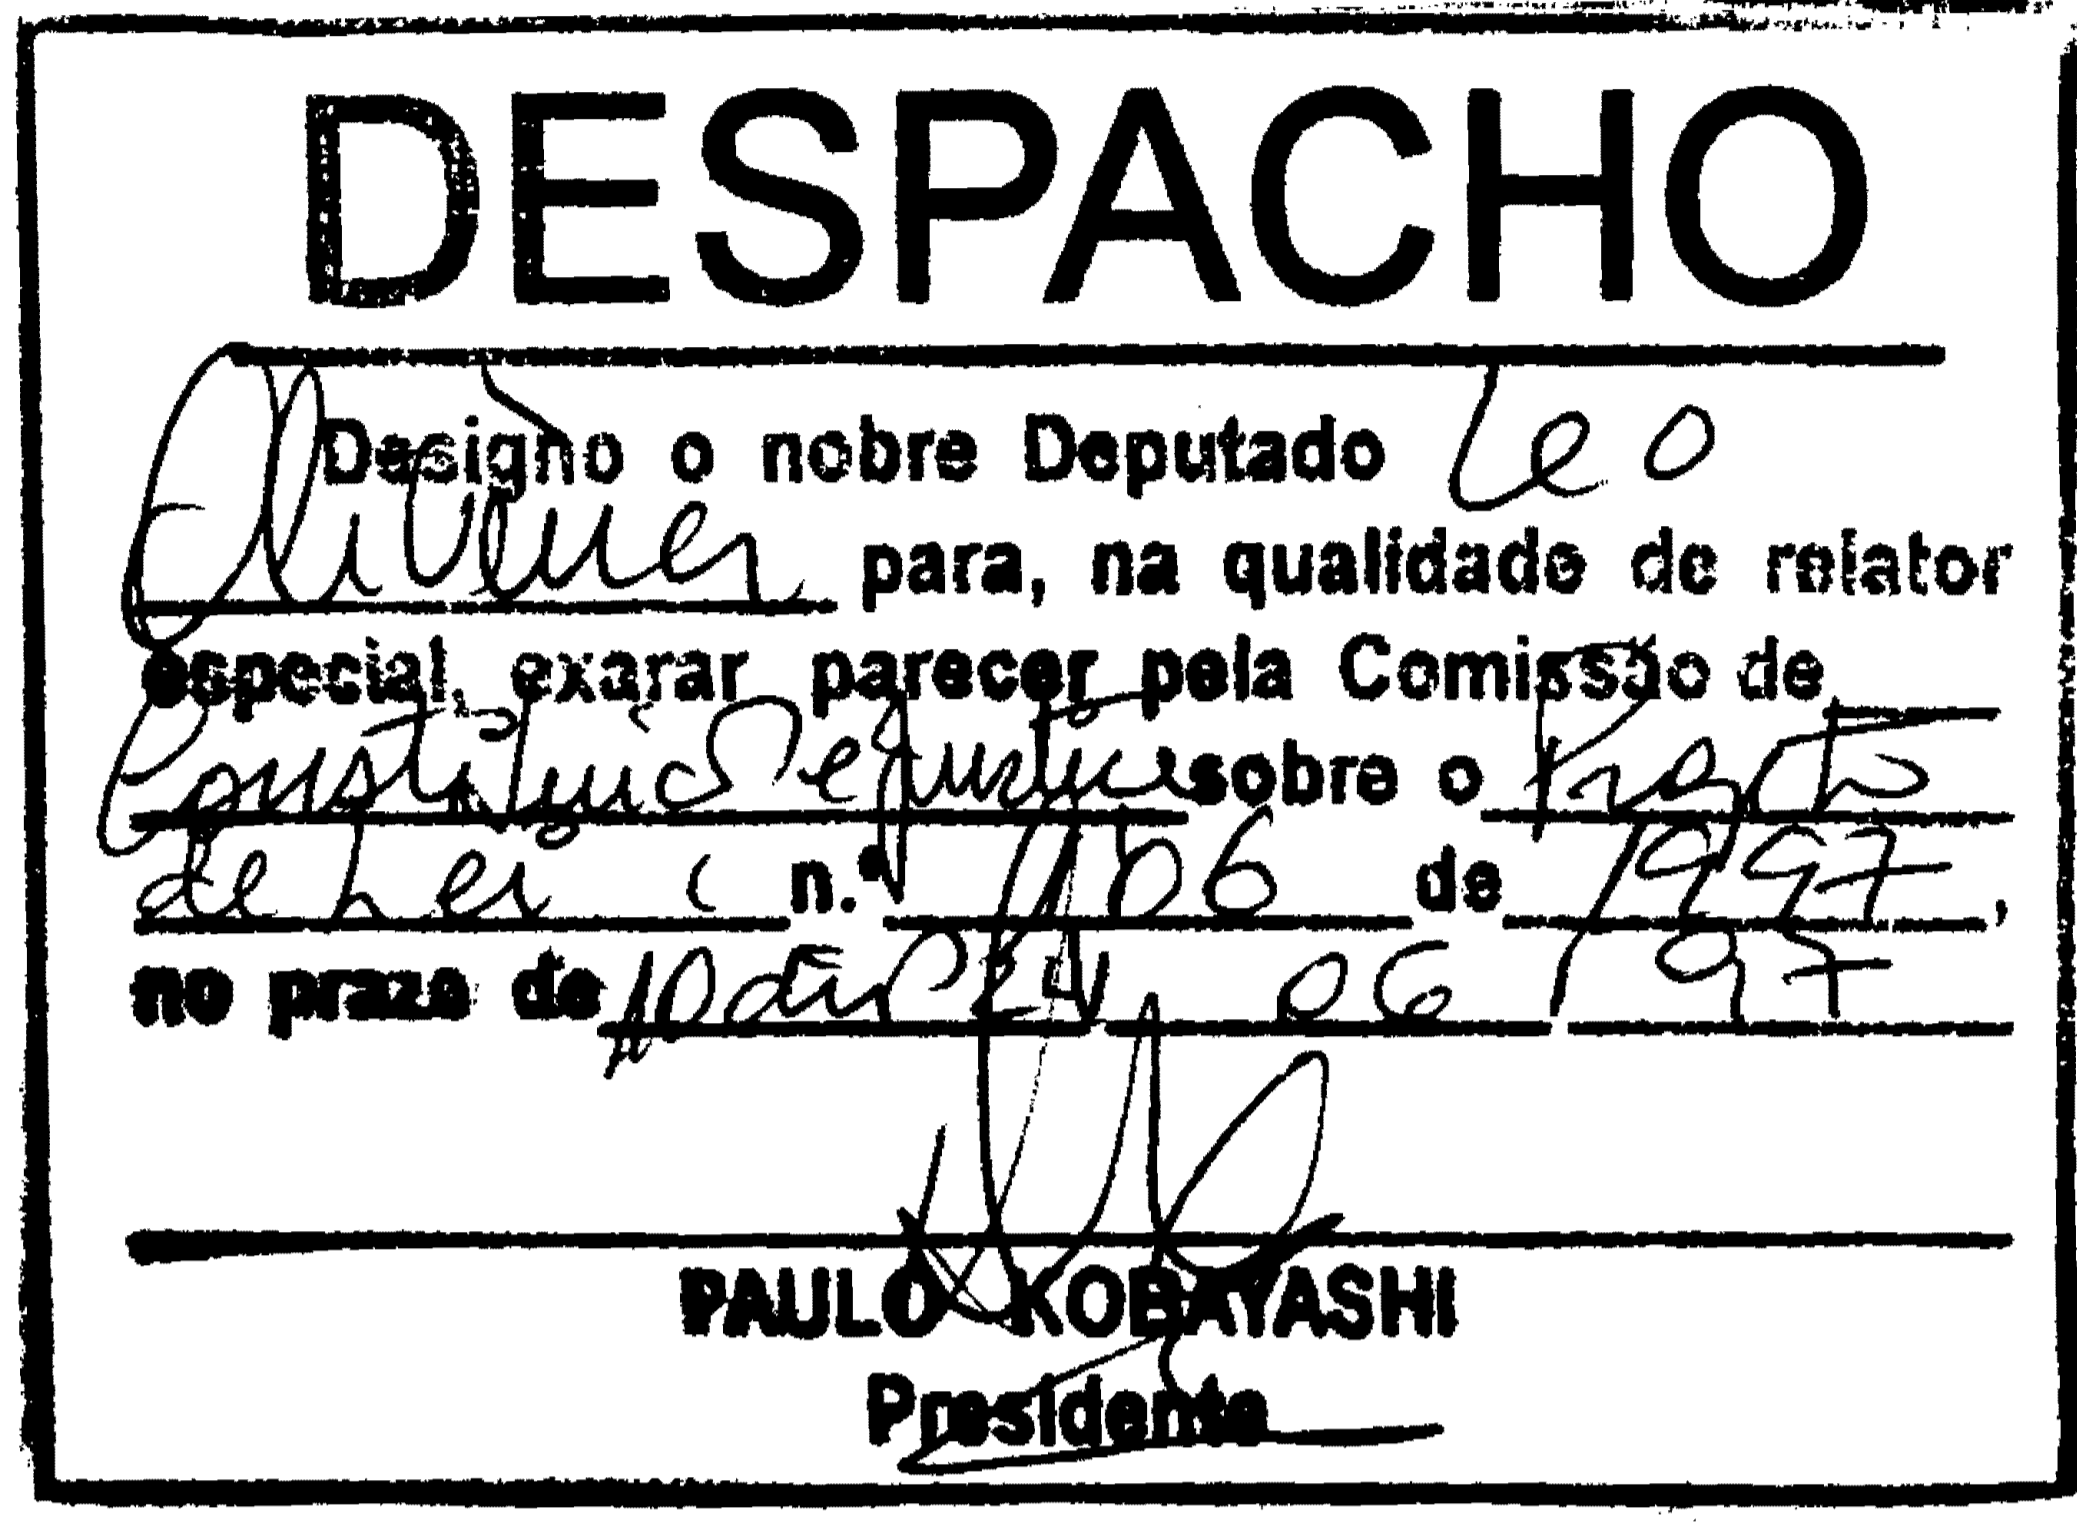 DESPACHO
Designo o nobre Deputado Leo
Oliveira para, na qualidade de relator
especial, exarar parecer pela Comissão de
Constituição e Justiça sobre o Projeto
de Lei n.º de 1997,
no prazo de 10 dias 24 06 97
PAULO KOBAYASHI
Presidente